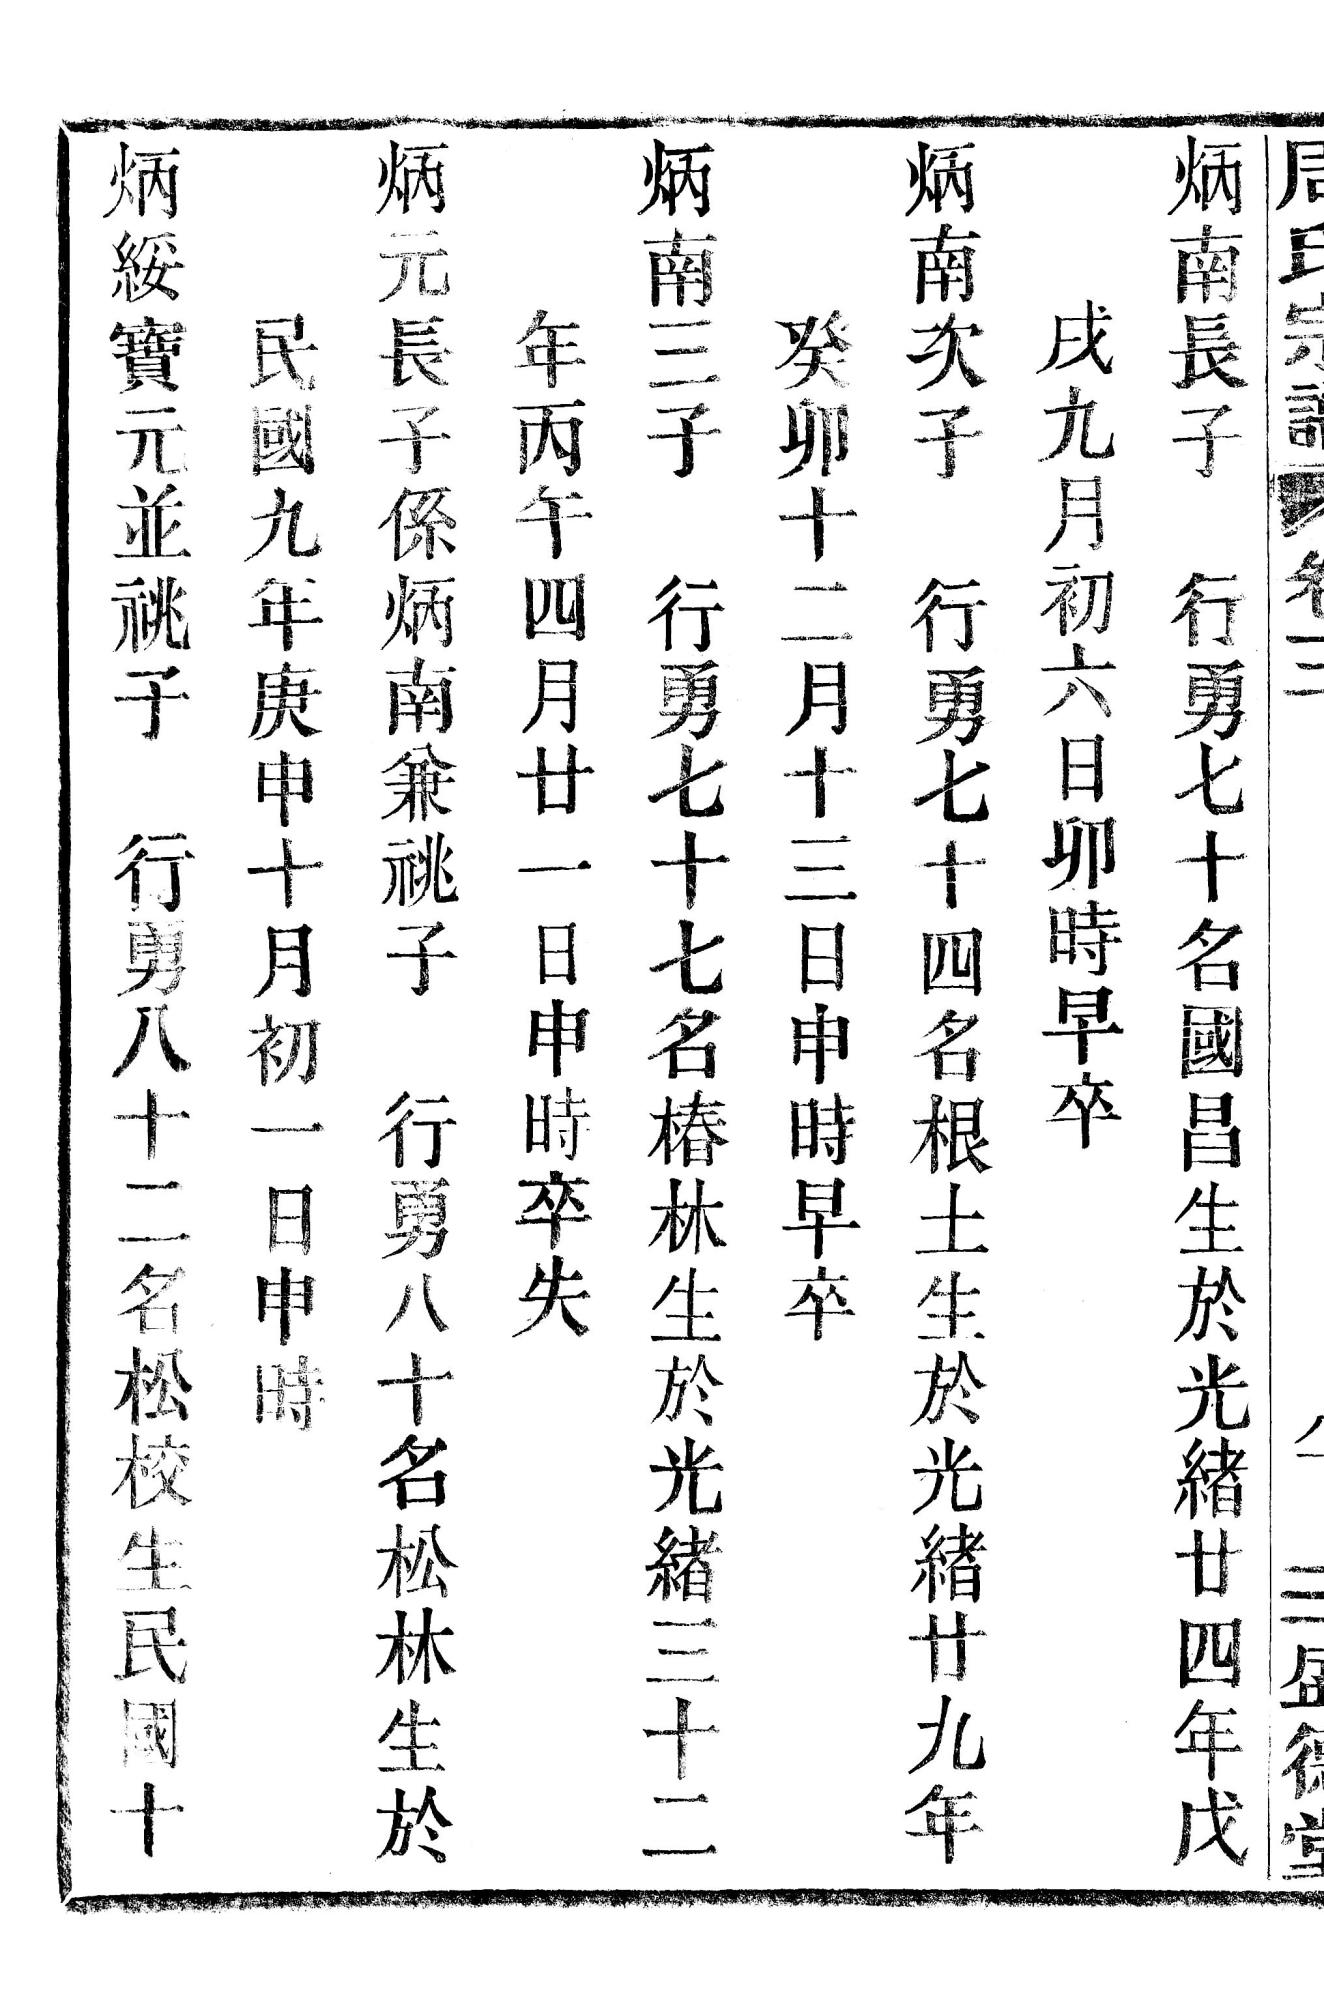 周氏宗譜 卷三 三盛德堂
炳南長子　行勇七十名國昌生於光緒廿四年戊
戌九月初六日卯時早卒
炳南次子　行勇七十四名根土生於光緒廿九年
癸卯十二月十三日申時早卒
炳南三子　行勇七十七名椿林生於光緒三十二
年丙午四月廿一日申時卒失
炳元長子係炳南兼祧子　行勇八十名松林生於
民國九年庚申十月初一日申時
炳綏寶元並祧子　行勇八十二名松校生民國十